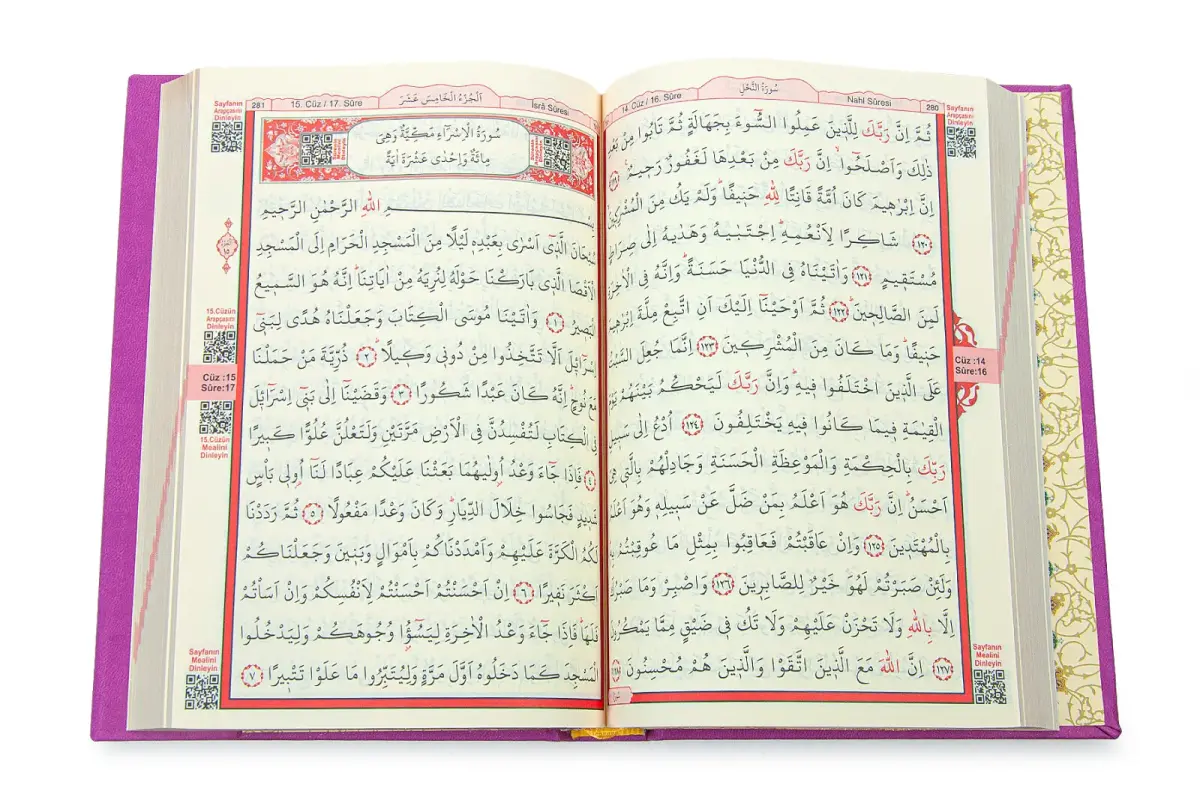 سُورَةُ النَّحْلِ
14. Cüz / 16. Sûre
Nahl Sûresi
280
Sayfanın
Arapçasını
Dinleyin
ثُمَّ اِنَّ رَبَّكَ لِلَّذٖينَ عَمِلُوا السُّٓوءَ بِجَهَالَةٍ ثُمَّ تَابُوا مِنْ بَعْدِ
ذٰلِكَ وَاَصْلَحُٓوا اِنَّ رَبَّكَ مِنْ بَعْدِهَا لَغَفُورٌ رَحٖيمٌ
اِنَّ اِبْرٰهٖيمَ كَانَ اُمَّةً قَانِتًا لِلّٰهِ حَنٖيفًا وَلَمْ يَكُ مِنَ الْمُشْرِكٖينَ
﴿١٢٠﴾ شَاكِرًا لِاَنْعُمِهٖ اِجْتَبٰيهُ وَهَدٰيهُ اِلٰى صِرَاطٍ
مُسْتَقٖيمٍ ﴿١٢١﴾ وَاٰتَيْنَاهُ فِي الدُّنْيَا حَسَنَةً وَاِنَّهُ فِي الْاٰخِرَةِ
لَمِنَ الصَّالِحٖينَ ﴿١٢٢﴾ ثُمَّ اَوْحَيْنَٓا اِلَيْكَ اَنِ اتَّبِعْ مِلَّةَ اِبْرٰهٖيمَ
حَنٖيفًا وَمَا كَانَ مِنَ الْمُشْرِكٖينَ ﴿١٢٣﴾ اِنَّمَا جُعِلَ السَّبْتُ
عَلَى الَّذٖينَ اخْتَلَفُوا فٖيهِ وَاِنَّ رَبَّكَ لَيَحْكُمُ بَيْنَهُمْ يَوْمَ
الْقِيٰمَةِ فٖيمَا كَانُوا فٖيهِ يَخْتَلِفُونَ ﴿١٢٤﴾ اُدْعُ اِلٰى سَبٖيلِ
رَبِّكَ بِالْحِكْمَةِ وَالْمَوْعِظَةِ الْحَسَنَةِ وَجَادِلْهُمْ بِالَّتٖي هِيَ
اَحْسَنُ اِنَّ رَبَّكَ هُوَ اَعْلَمُ بِمَنْ ضَلَّ عَنْ سَبٖيلِهٖ وَهُوَ اَعْلَمُ
بِالْمُهْتَدٖينَ ﴿١٢٥﴾ وَاِنْ عَاقَبْتُمْ فَعَاقِبُوا بِمِثْلِ مَا عُوقِبْتُمْ بِهٖ
وَلَئِنْ صَبَرْتُمْ لَهُوَ خَيْرٌ لِلصَّابِرٖينَ ﴿١٢٦﴾ وَاصْبِرْ وَمَا صَبْرُكَ
اِلَّا بِاللّٰهِ وَلَا تَحْزَنْ عَلَيْهِمْ وَلَا تَكُ فٖي ضَيْقٍ مِمَّا يَمْكُرُونَ
﴿١٢٧﴾ اِنَّ اللّٰهَ مَعَ الَّذٖينَ اتَّقَوْا وَالَّذٖينَ هُمْ مُحْسِنُونَ ﴿١٢٨﴾
Cüz :14
Sûre:16
Sayfanın
Mealini
Dinleyin
281
15. Cüz / 17. Sûre
اَلْجُزْءُ الْخَامِسَ عَشَرَ
İsrâ Sûresi
Sayfanın
Arapçasını
Dinleyin
سُورَةُ الْاِسْرَٓاءِ مَكِّيَّةٌ وَهِيَ
مِائَةٌ وَاِحْدٰى عَشْرَةَ اٰيَةً
بِسْمِ اللّٰهِ الرَّحْمٰنِ الرَّحٖيمِ
سُبْحَانَ الَّذٖٓي اَسْرٰى بِعَبْدِهٖ لَيْلًا مِنَ الْمَسْجِدِ الْحَرَامِ اِلَى الْمَسْجِدِ
الْاَقْصَا الَّذٖي بَارَكْنَا حَوْلَهُ لِنُرِيَهُ مِنْ اٰيَاتِنَا اِنَّهُ هُوَ السَّمٖيعُ
الْبَصٖيرُ ﴿١﴾ وَاٰتَيْنَا مُوسَى الْكِتَابَ وَجَعَلْنَاهُ هُدًى لِبَنٖٓي
اِسْرَٓائٖلَ اَلَّا تَتَّخِذُوا مِنْ دُونٖي وَكٖيلًا ﴿٢﴾ ذُرِّيَّةَ مَنْ حَمَلْنَا
مَعَ نُوحٍ اِنَّهُ كَانَ عَبْدًا شَكُورًا ﴿٣﴾ وَقَضَيْنَٓا اِلٰى بَنٖٓي اِسْرَٓائٖلَ
فِي الْكِتَابِ لَتُفْسِدُنَّ فِي الْاَرْضِ مَرَّتَيْنِ وَلَتَعْلُنَّ عُلُوًّا كَبٖيرًا
﴿٤﴾ فَاِذَا جَٓاءَ وَعْدُ اُو۫لٰيهُمَا بَعَثْنَا عَلَيْكُمْ عِبَادًا لَنَٓا اُو۬لٖي بَأْسٍ
شَدٖيدٍ فَجَاسُوا خِلَالَ الدِّيَارِ وَكَانَ وَعْدًا مَفْعُولًا ﴿٥﴾ ثُمَّ رَدَدْنَا
لَكُمُ الْكَرَّةَ عَلَيْهِمْ وَاَمْدَدْنَاكُمْ بِاَمْوَالٍ وَبَنٖينَ وَجَعَلْنَاكُمْ
اَكْثَرَ نَفٖيرًا ﴿٦﴾ اِنْ اَحْسَنْتُمْ اَحْسَنْتُمْ لِاَنْفُسِكُمْ وَاِنْ اَسَأْتُمْ
فَلَهَا فَاِذَا جَٓاءَ وَعْدُ الْاٰخِرَةِ لِيَسُٓؤُ۫ا وُجُوهَكُمْ وَلِيَدْخُلُوا
الْمَسْجِدَ كَمَا دَخَلُوهُ اَوَّلَ مَرَّةٍ وَلِيُتَبِّرُوا مَا عَلَوْا تَتْبٖيرًا ﴿٧﴾
15.Cüzün
Arapçasını
Dinleyin
Cüz :15
Sûre:17
15.Cüzün
Mealini
Dinleyin
Sayfanın
Mealini
Dinleyin